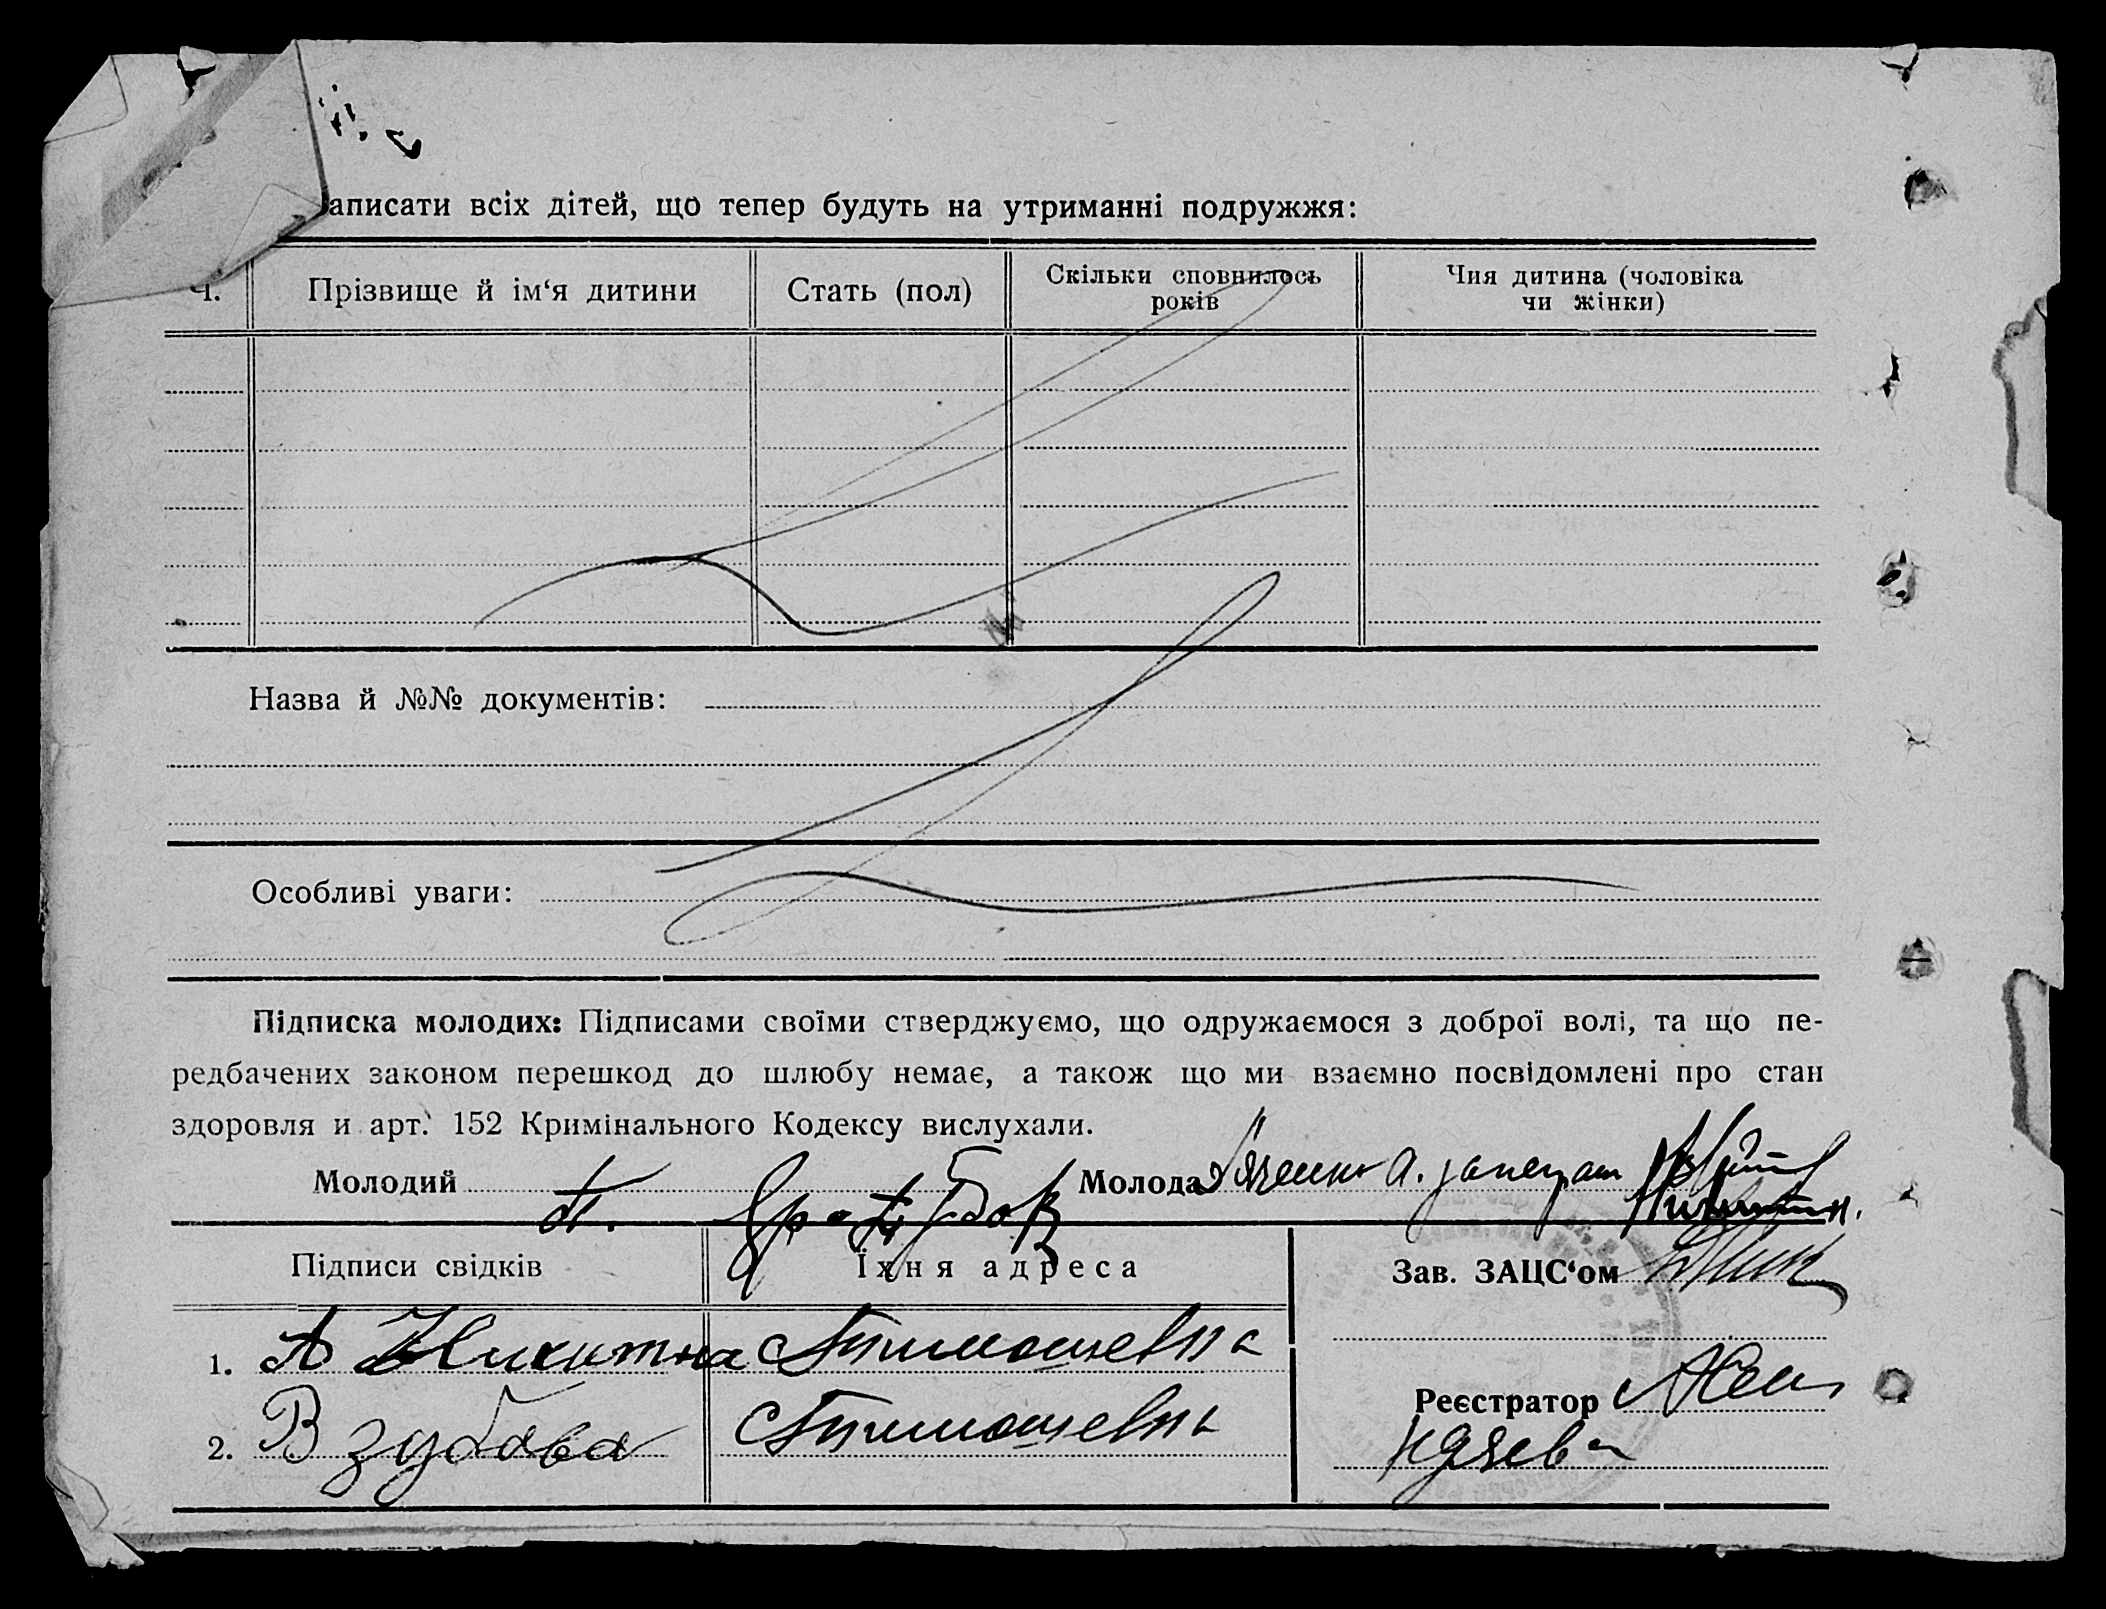 аписати всіх дітей, що тепер будуть на утриманні подружжя:
Ч. Прізвище й ім‘я дитини Стать (пол) Скільки сповнилось років Чия дитина (чоловіка чи жінки)
Назва й №№ документів:
Особливі уваги:
Підписка молодих: Підписами своїми стверджуємо, що одружаємося з доброї волі, та що пе-
редбачених законом перешкод до шлюбу немає, а також що ми взаємно посвідомлені про стан
здоровля и арт. 152 Кримінального Кодексу вислухали.
Молодий Молода
Підписи свідків Їхня адреса Зав. ЗАЦС‘ом
1. А Никитина
Реєстратор
2. В Зубова